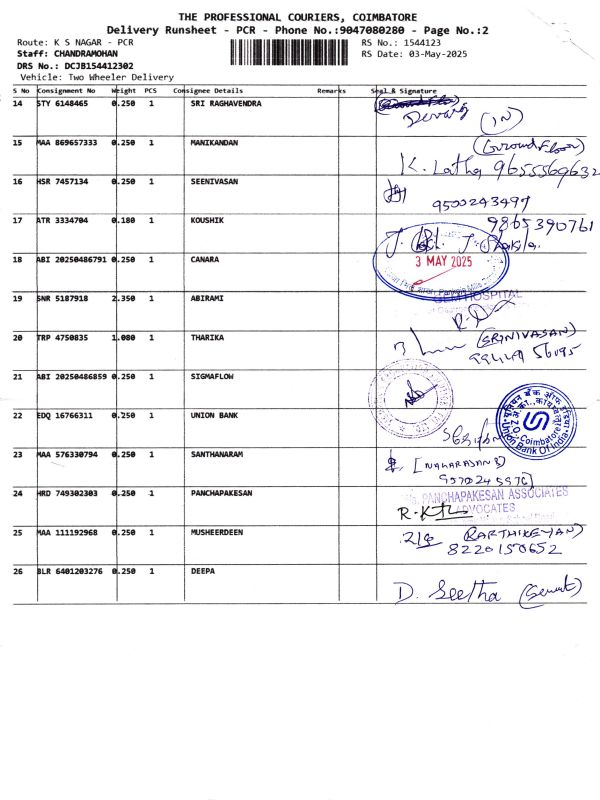 THE PROFESSIONAL COURIERS, COIMBATORE
Delivery Runsheet - PCR - Phone No.:9047080280 - Page No.:2
Route: K S NAGAR - PCR
RS No.: 1544123
Staff: CHANDRAMOHAN
RS Date: 03-May-2025
DRS No.: DCJB154412302
Vehicle: Two Wheeler Delivery
S No Consignment No Weight PCS Consignee Details Remarks Seal & Signature
14 STY 6148465 0.250 1 SRI RAGHAVENDRA
(IN)
15 MAA 869657333 0.250 1 MANIKANDAN
(Ground Floor)
K. Latha 9655569632
16 HSR 7457134 0.250 1 SEENIVASAN
9500243497
17 ATR 3334704 0.180 1 KOUSHIK
9865390761
18 ABI 20250486791 0.250 1 CANARA
3 MAY 2025
19 SNR 5187918 2.350 1 ABIRAMI
GEM HOSPITAL
20 TRP 4750835 1.080 1 THARIKA
(SRINIVASAN)
21 ABI 20250486859 0.250 1 SIGMAFLOW
22 EDQ 16766311 0.250 1 UNION BANK
Coimbatore
Union Bank Of India
23 MAA 576330794 0.250 1 SANTHANARAM
24 HRD 749302303 0.250 1 PANCHAPAKESAN
PANCHAPAKESAN ASSOCIATES
ADVOCATES
25 MAA 111192968 0.250 1 MUSHERDEEN
(KARTHIKEYAN)
8220150652
26 BLR 6401203276 0.250 1 DEEPA
D. Seetha